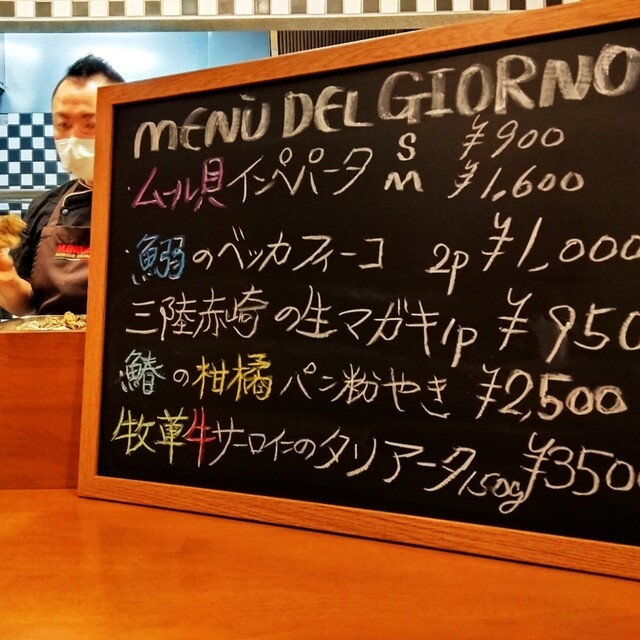 MENÙ DEL GIORNO
ムール貝インペパータ S ¥900
M ¥1,600
鰯のベッカフィーコ 2p ¥1,000
三陸赤崎の生マガキ 1p ¥950
鰆の柑橘パン粉やき ¥2,500
牧草牛サーロインのタリアータ 150g ¥3500